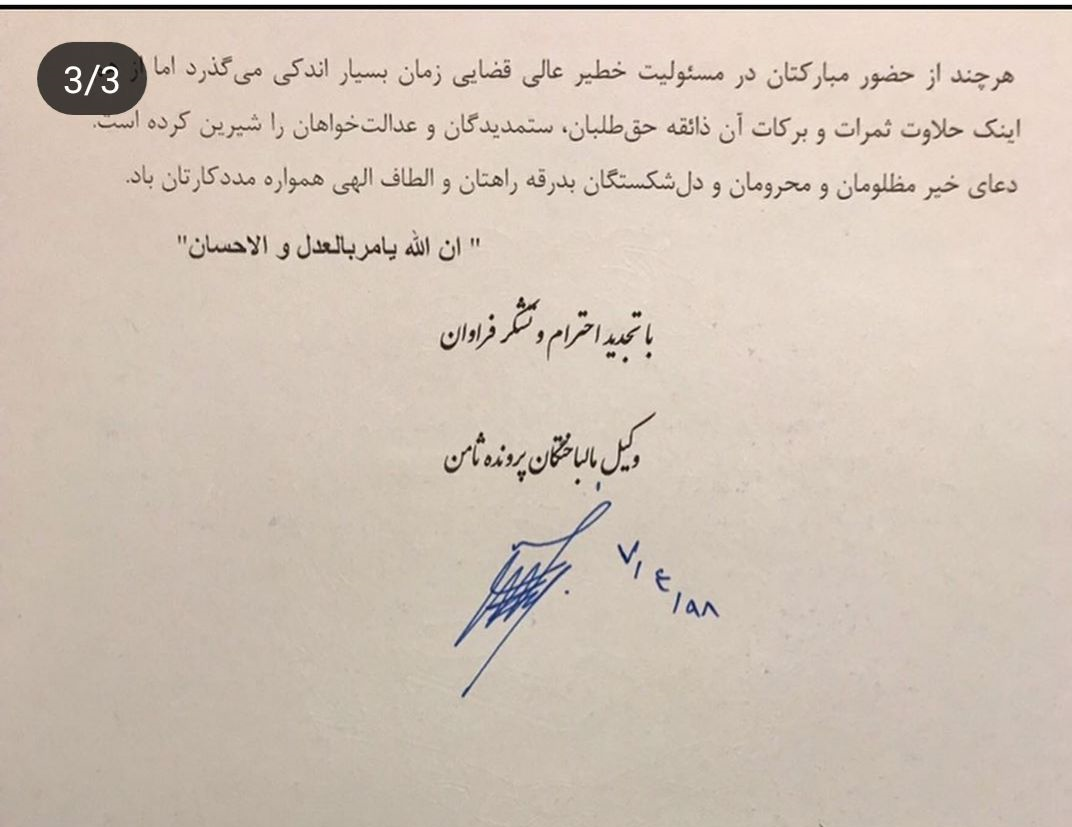 3/3
هرچند از حضور مبارکتان در مسئولیت خطیر عالی قضایی زمان بسیار اندکی می‌گذرد اما از
اینک حلاوت ثمرات و برکات آن ذائقه حق‌طلبان، ستمدیدگان و عدالت‌خواهان را شیرین کرده است.
دعای خیر مظلومان و محرومان و دل‌شکستگان بدرقه راهتان و الطاف الهی همواره مددکارتان باد.
" ان الله یامربالعدل و الاحسان"
با تجدید احترام و تشکر فراوان
وکیل مالباختگان پرونده ثامن
۷/۴/۹۸